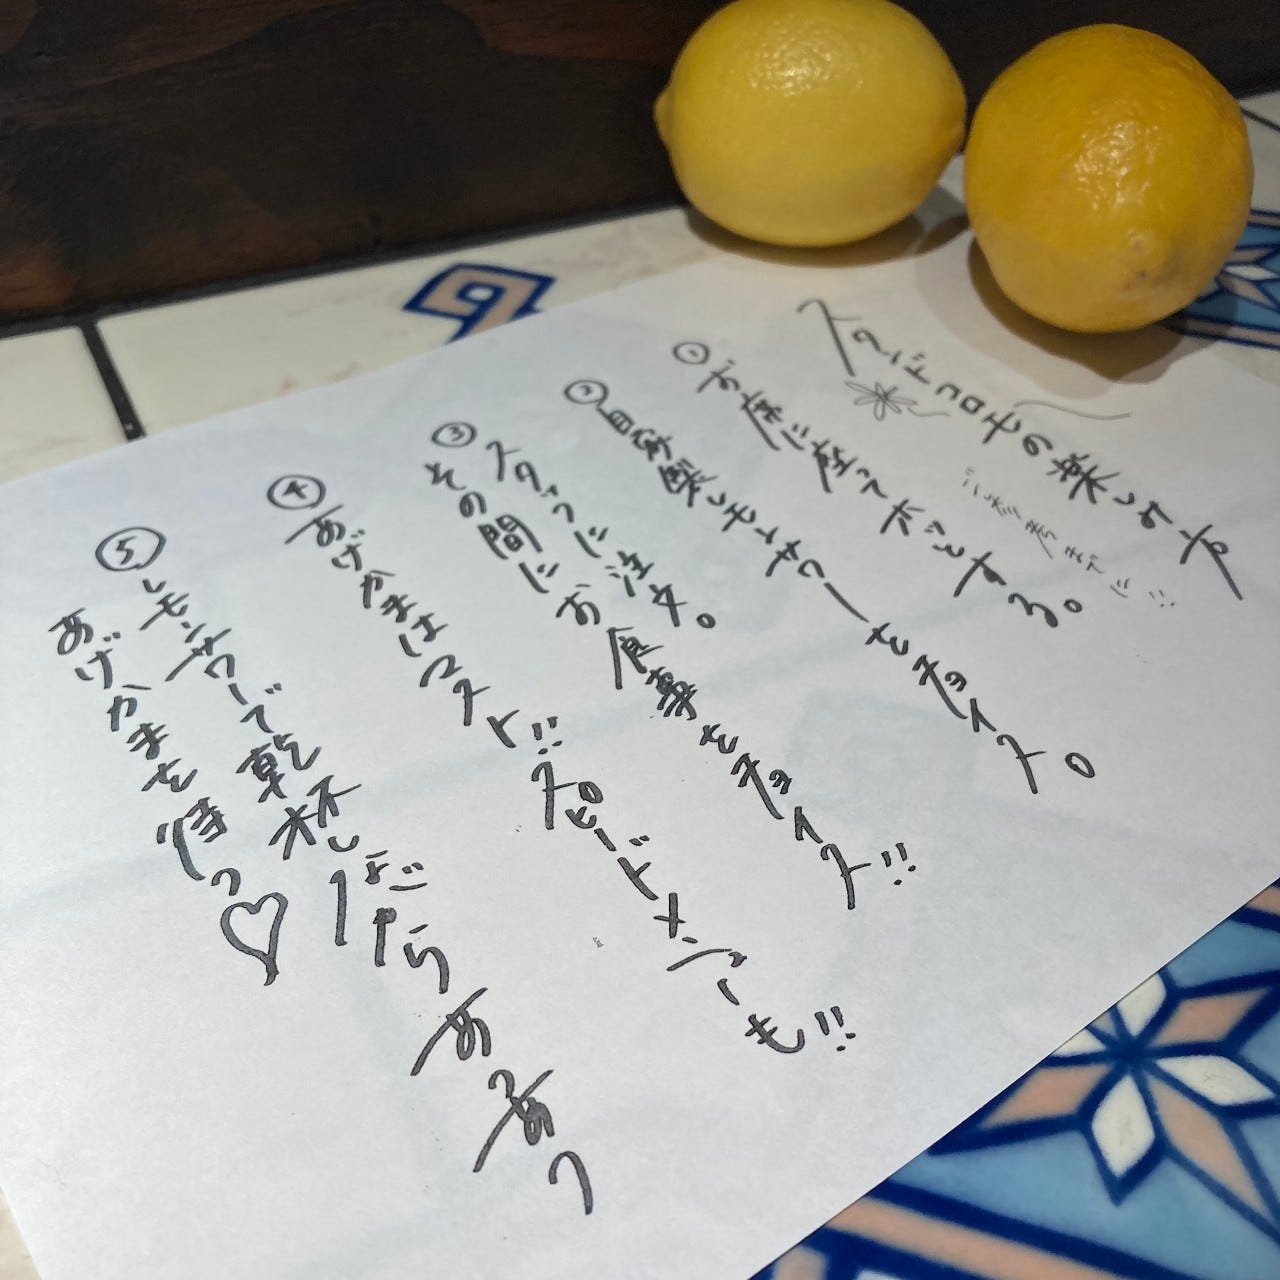 スタンドコロモの楽しみ方
ご参考までに!!
① お席に座ってホッとする。
② 自家製レモンサワーをチョイス。
スタッフに注文。
③ その間にお食事をチョイス!!
④ あげかまはマスト!!スピードメニューも!!
⑤ レモンサワーで乾杯しながらあつあつ
あげかまを待つ♡